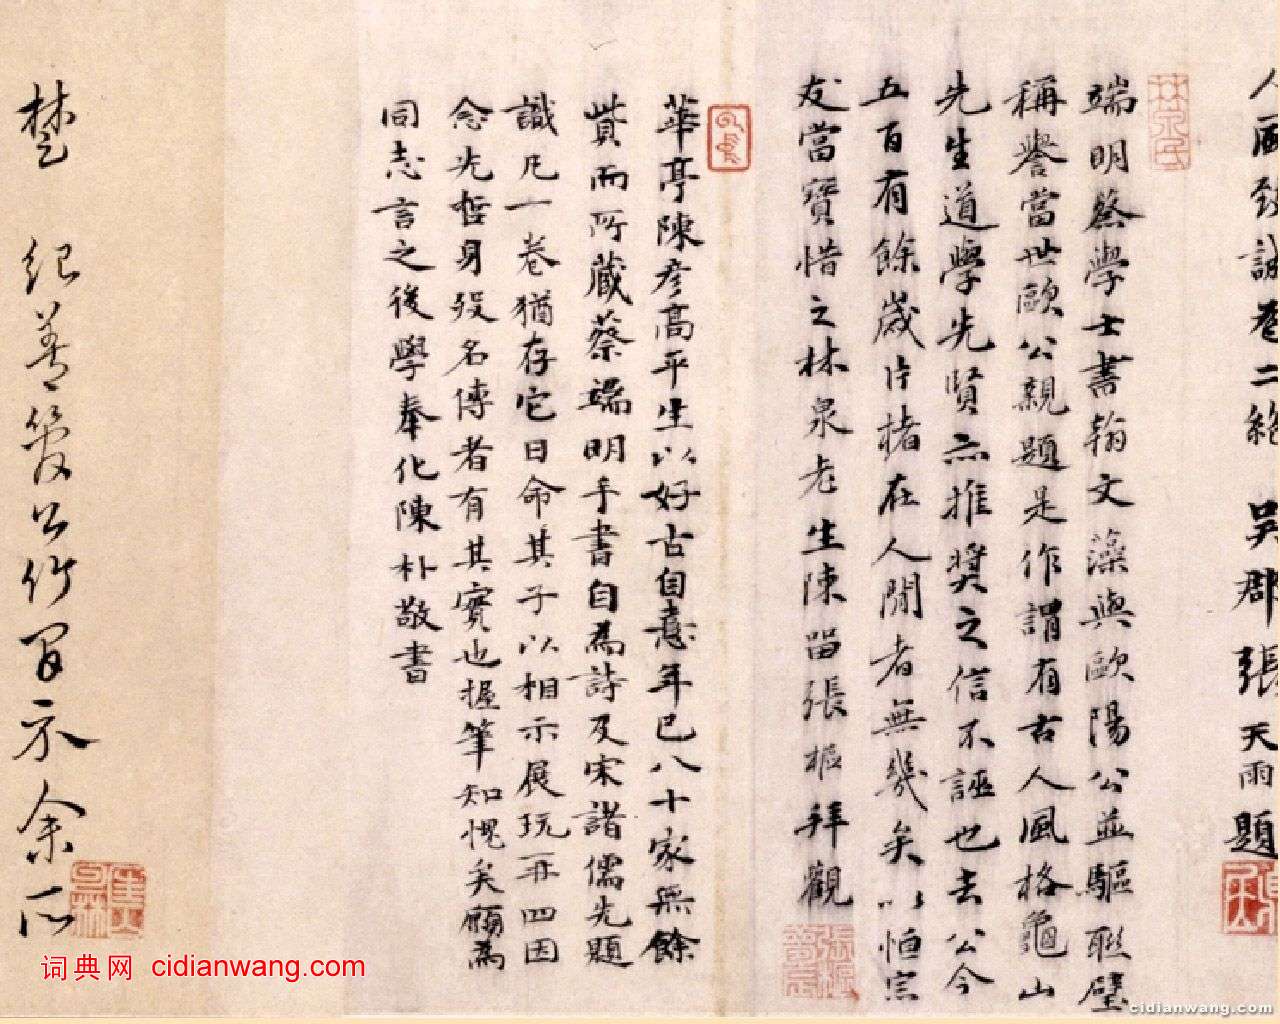 人風致詠卷二絕 吳郡張天雨題
端明蔡學士書翰文藻與歐陽公並驅聯璧
稱譽當世歐公親題是作謂有古人風格龜山
先生道學先賢亦推奬之信不誣也去公今
五百有餘歲片楮在人間者無幾矣以恒宗
友當寶惜之林泉老生陳留張樞拜觀
華亭陳彥高平生以好古自憙年已八十家無餘
貲而所藏蔡端明手書自為詩及宋諸儒先題
識凡一卷猶存它日命其子以相示展玩再四因
念先哲身歿名傳者有其實也握筆知愧矣願為
同志言之後學奉化陳朴敬書
楚 紀善籛公付男示余所
词典网 cidianwang.com
cidianwang.com